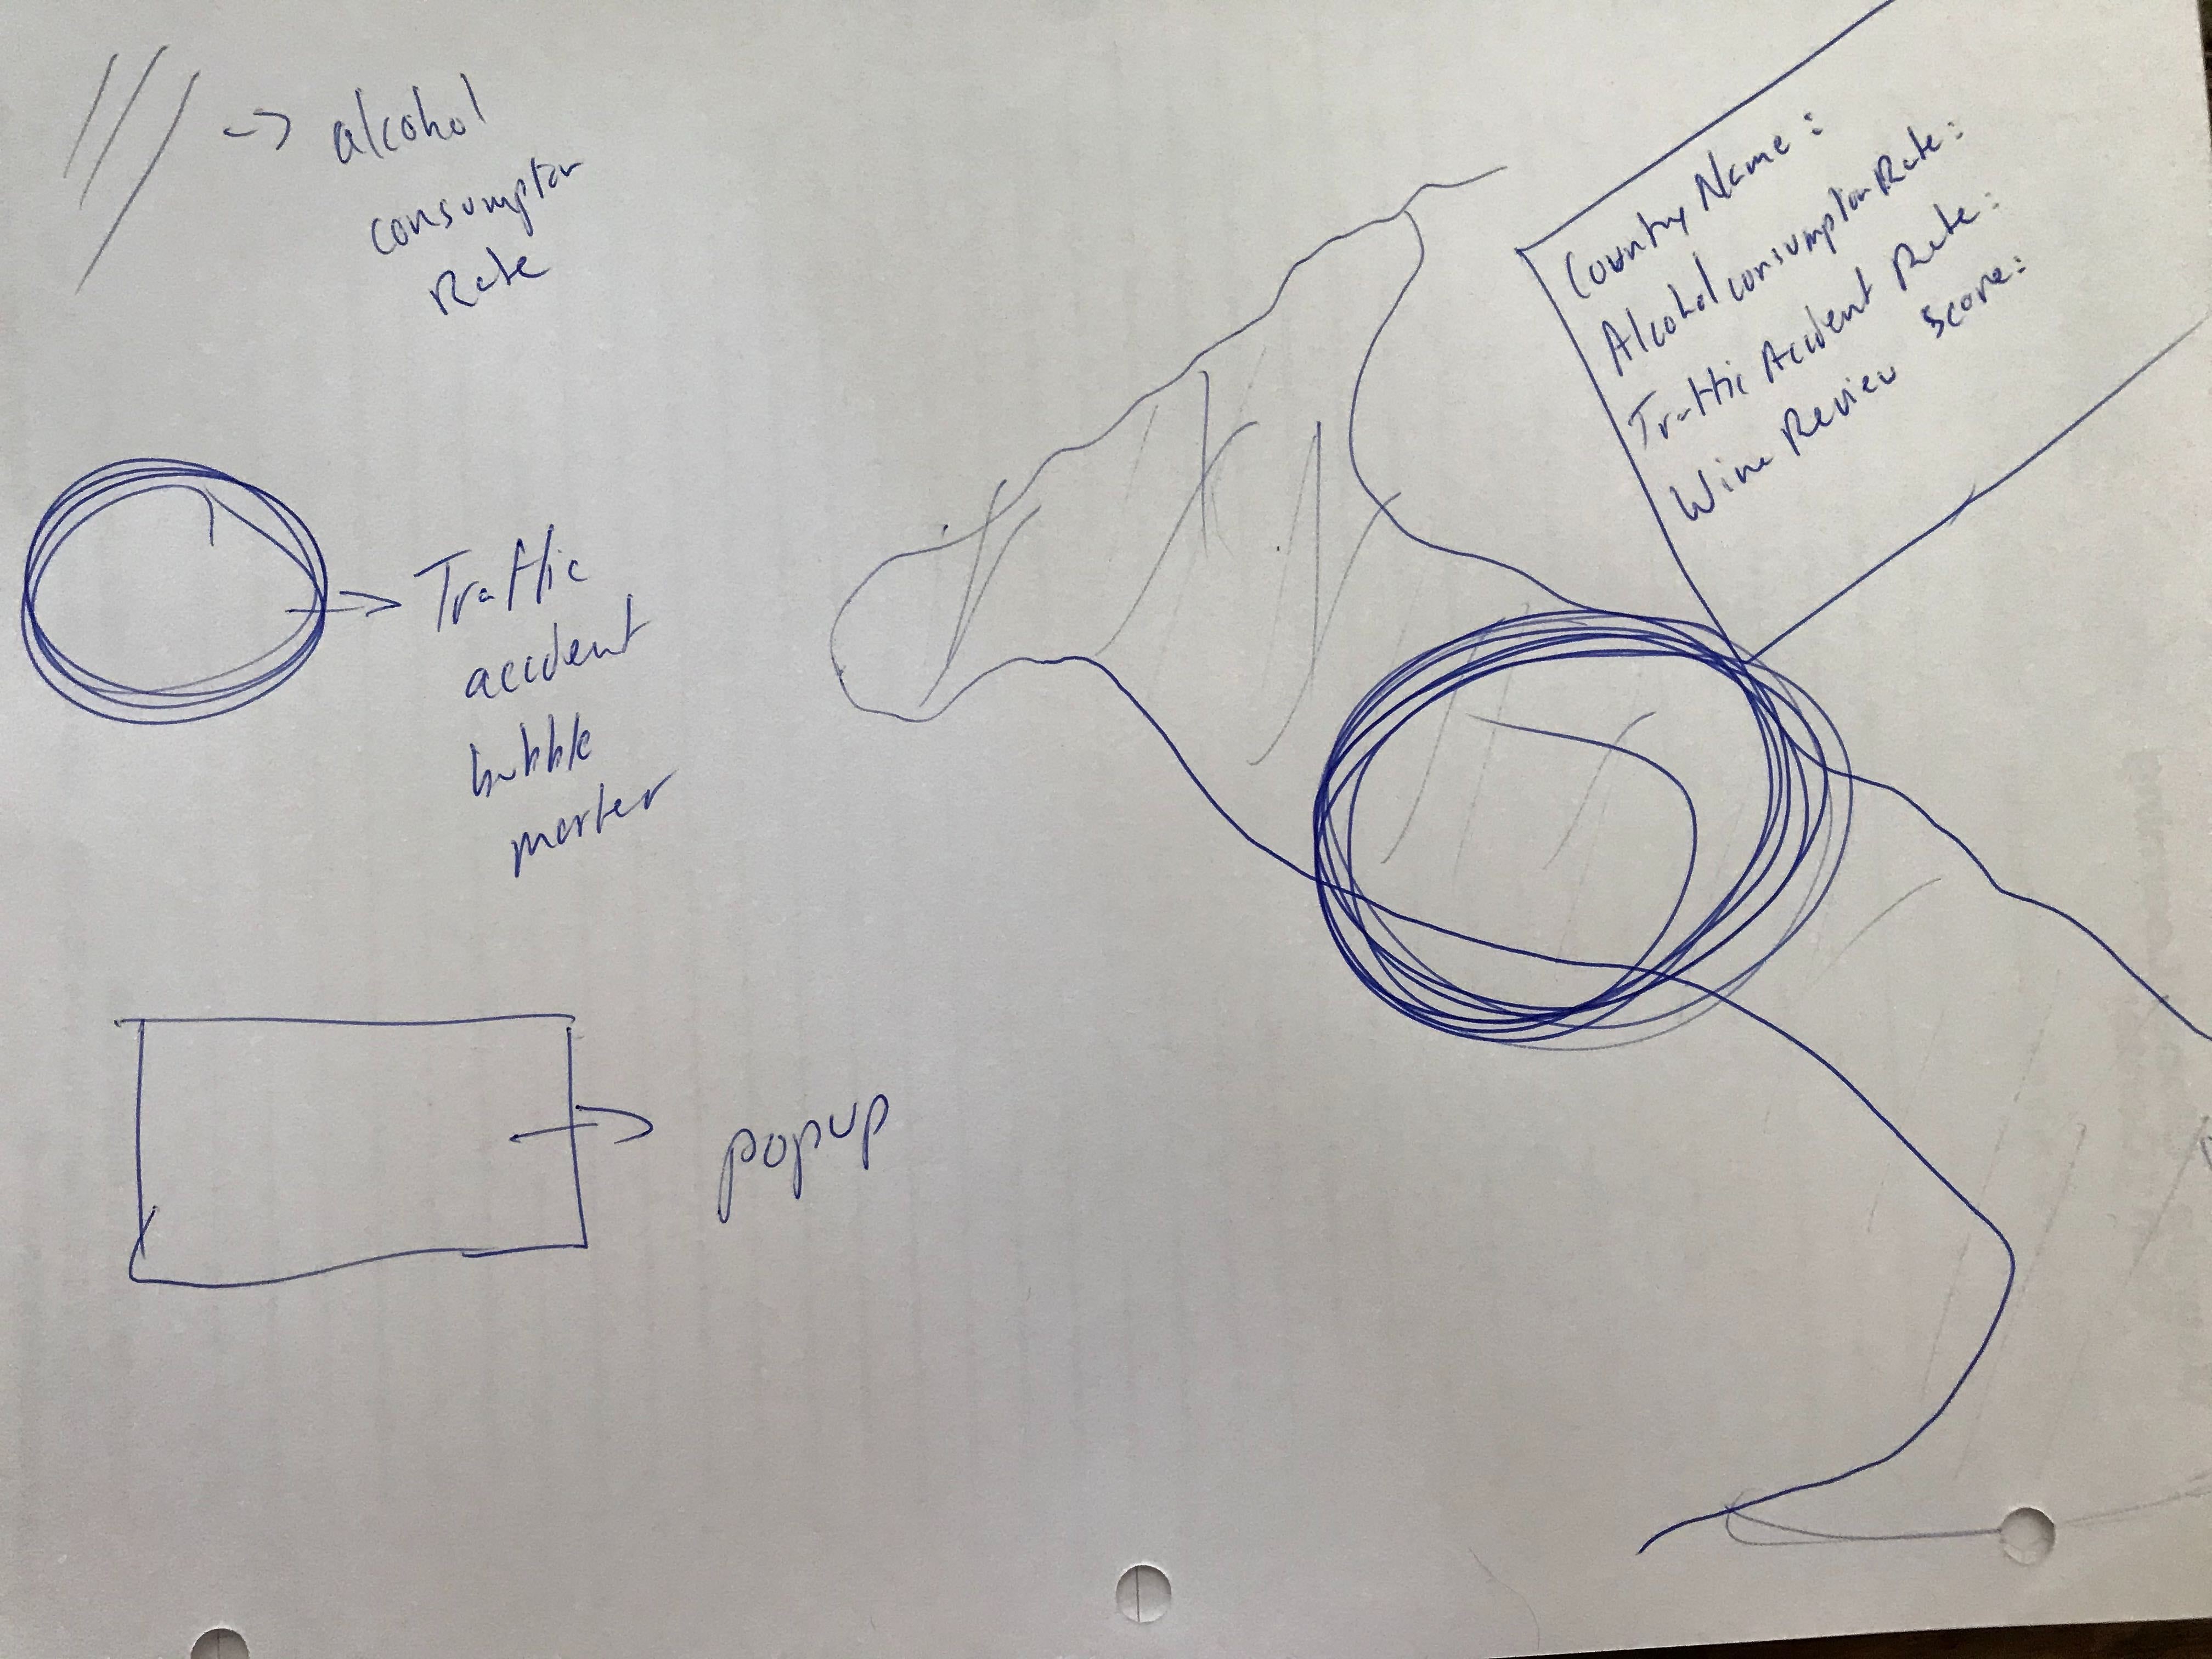 -> alcohol
consumption
Rate
Traffic
accident
bubble
marker
popup
Country Name :
Alcohol consumption Rate :
Traffic Accident Rate :
Wine Review Score :